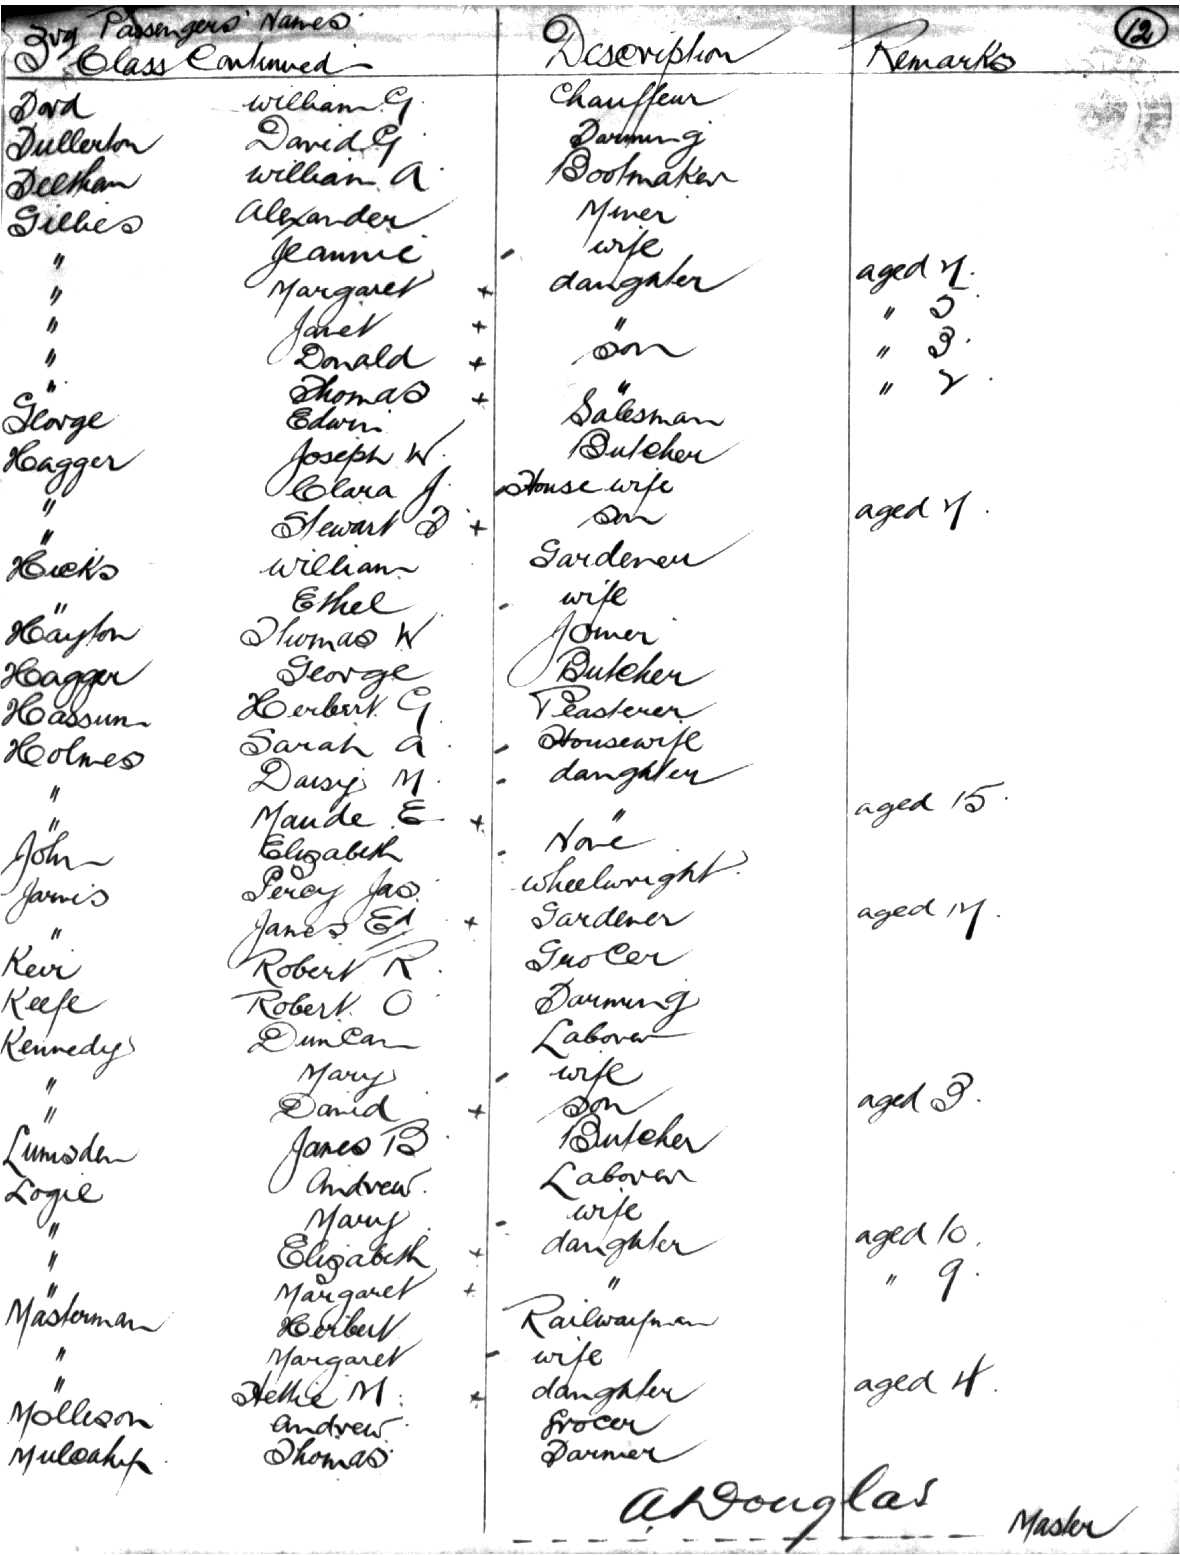 12
3rd Passengers' Names
Class Continued Description Remarks
Ford William G. Chauffeur
Fullerton David G. Farming
Feltham William A. Bootmaker
Gillies Alexander Miner
" Jeannie - wife
" Margaret + daughter aged 7.
" Janet + " " 5
" Donald + son " 3.
" Thomas + " " 2.
George Edwin Salesman
Hagger Joseph W. Butcher
" Clara J. - House wife
" Stewart F + son aged 7.
Hicks William Gardener
" Ethel - wife
Hayton Thomas W Joiner
Hagger George Butcher
Herbert G. Plasterer
Holmes Sarah A. - Housewife
" Daisy M. - daughter
" Maude E + " aged 15.
John Elizabeth - None
Jarvis Percy Jas. Wheelwright.
" James Ed + Gardener aged 17.
Keir Robert R. Grocer
Keefe Robert O Farming
Kennedy Duncan Laborer
" Mary - wife
" David + son aged 3.
Lumsden James B. Butcher
Logie Andrew. Laborer
" Mary - wife
" Elizabeth + daughter aged 10.
" Margaret + " " 9.
Masterman Herbert Railwayman
" Margaret - wife
" Hettie M. + daughter aged 4.
Mollison Andrew. Grocer
Mulcahy Thomas Farmer
A Douglas
Master